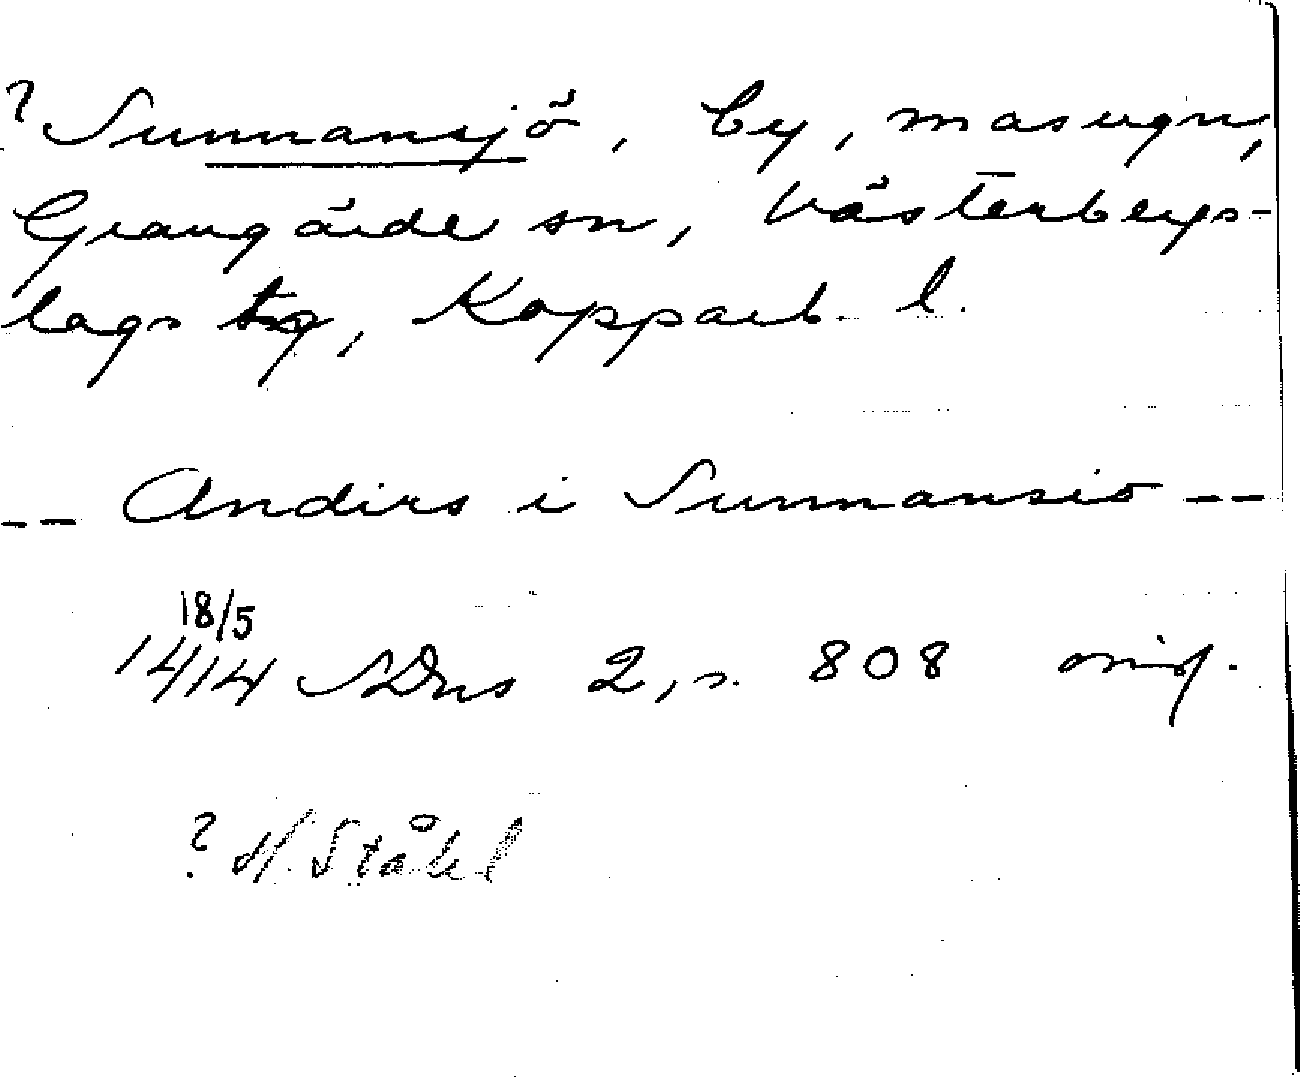 ? Sunnansjö, by, masugn,
Grangärde sn, Västerbergs-
lags tg, Kopparb. l.
-- Andirs i Sunnansio --
18/5
1414 SDns 2, s. 808 orig.
? H. Ståhl